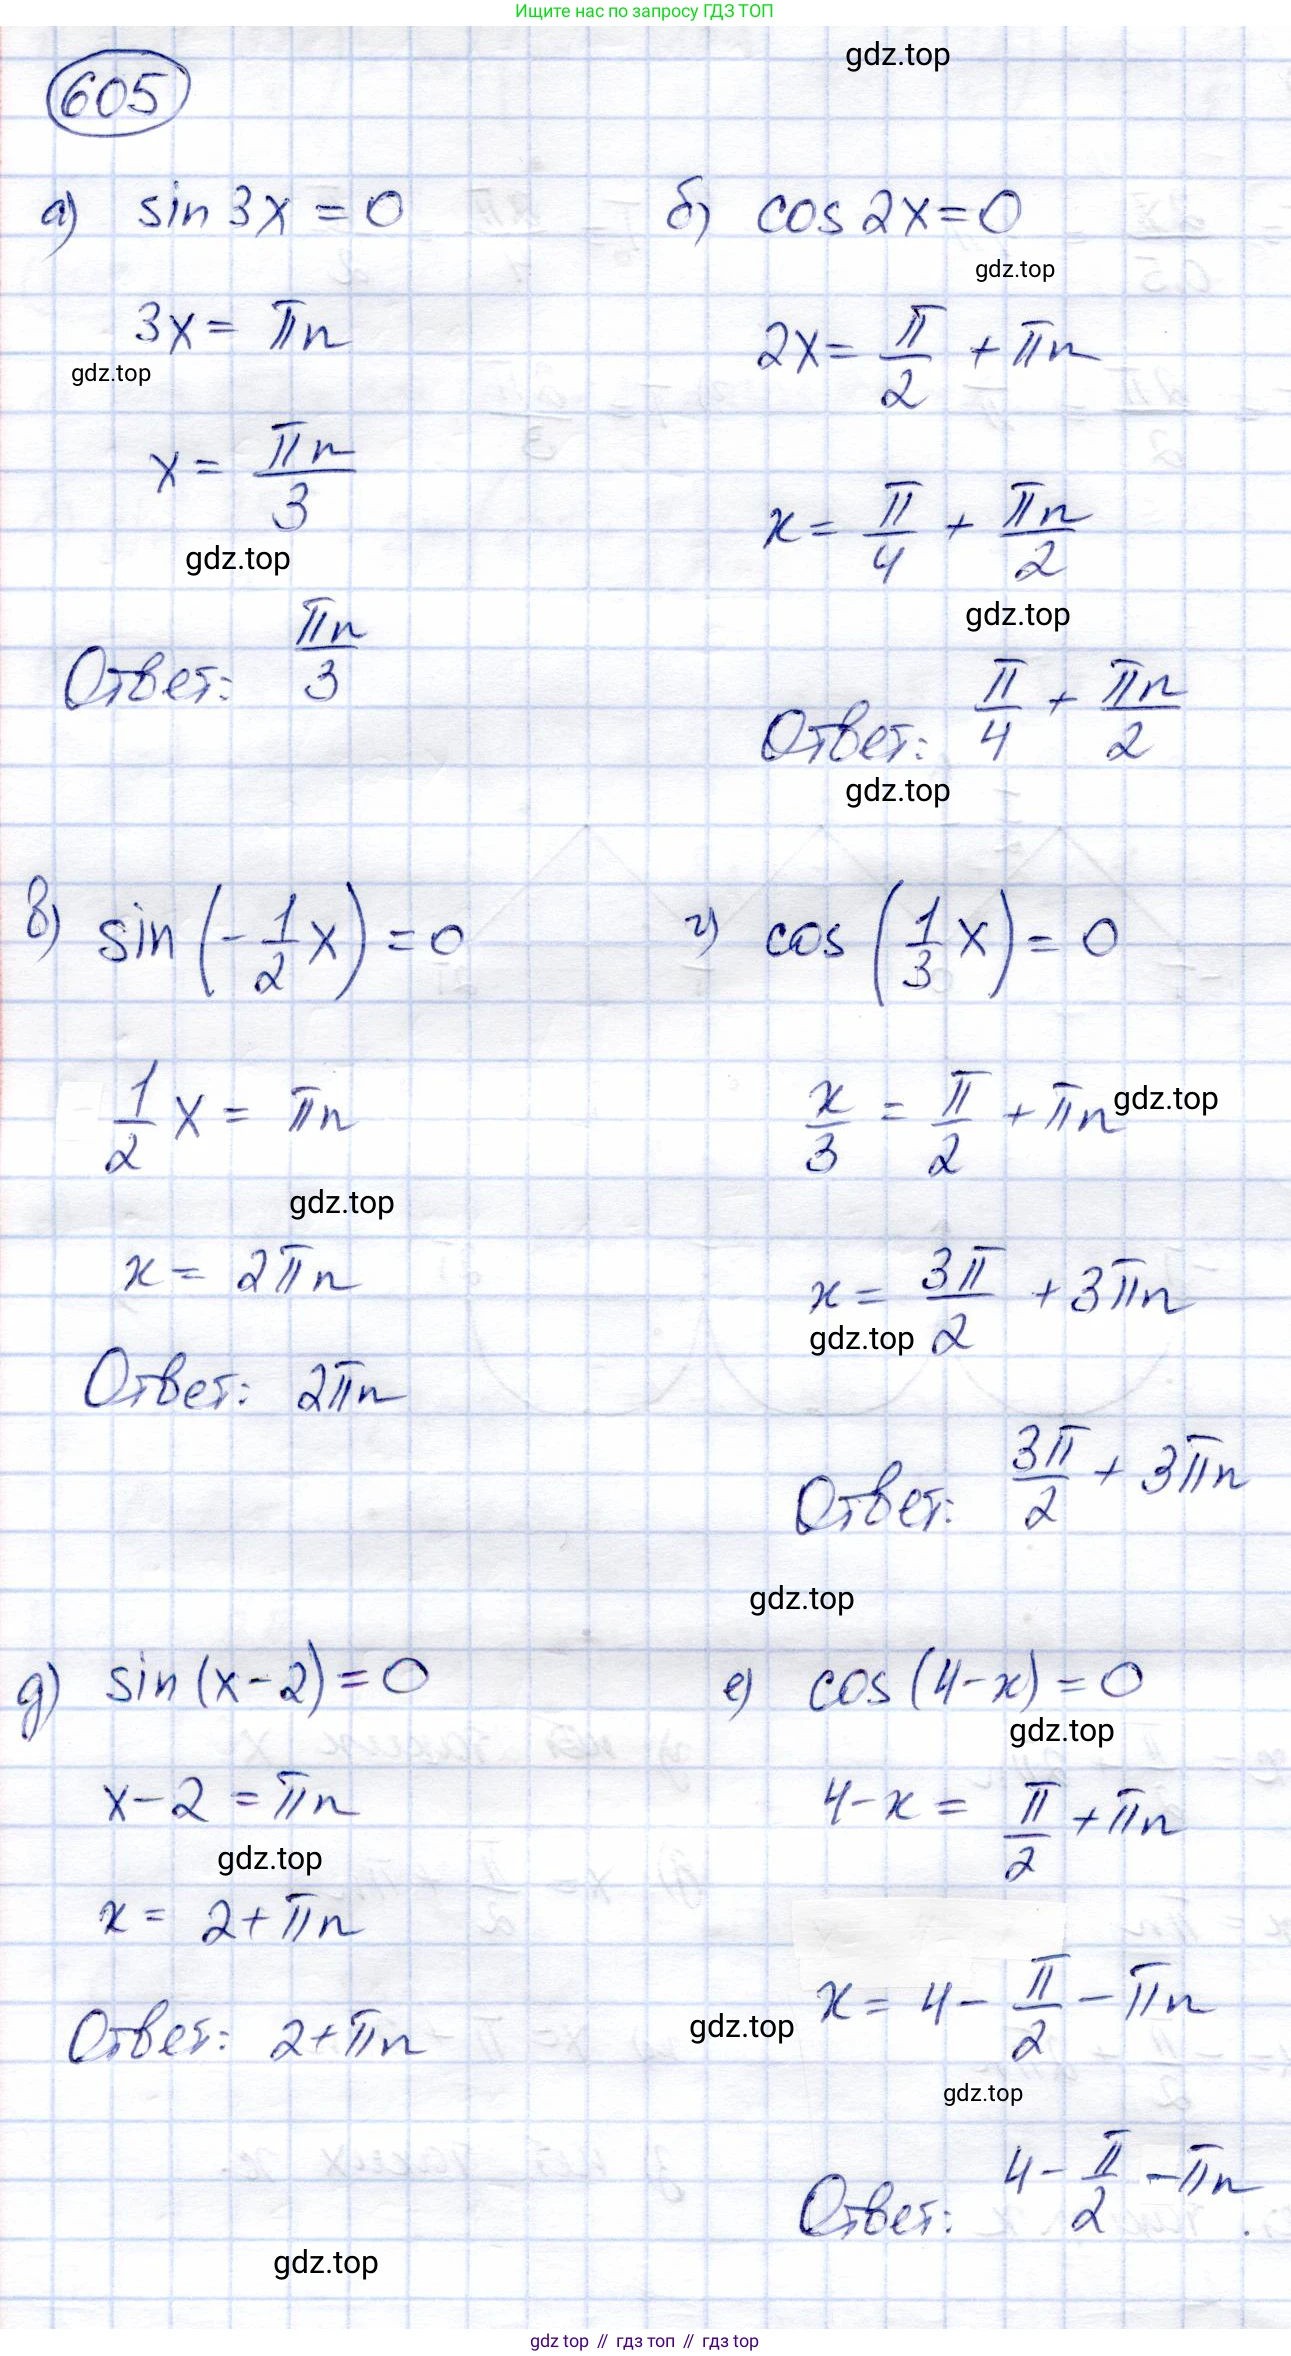 Ищите нас по запросу ГДЗ ТОП
gdz.top
605
а) sin 3x = 0
3x = πn
gdz.top
x = πn/3
gdz.top
Ответ: πn/3
б) cos 2x = 0
gdz.top
2x = π/2 + πn
x = π/4 + πn/2
gdz.top
Ответ: π/4 + πn/2
gdz.top
в) sin (-1/2 x) = 0
1/2 x = πn
gdz.top
x = 2πn
Ответ: 2πn
г) cos (1/3 x) = 0
x/3 = π/2 + πn
gdz.top
x = 3π/2 + 3πn
gdz.top
Ответ: 3π/2 + 3πn
gdz.top
д) sin (x - 2) = 0
x - 2 = πn
gdz.top
x = 2 + πn
Ответ: 2 + πn
gdz.top
е) cos (4 - x) = 0
gdz.top
4 - x = π/2 + πn
x = 4 - π/2 - πn
gdz.top
gdz.top
Ответ: 4 - π/2 - πn
gdz top // гдз топ // гдз top